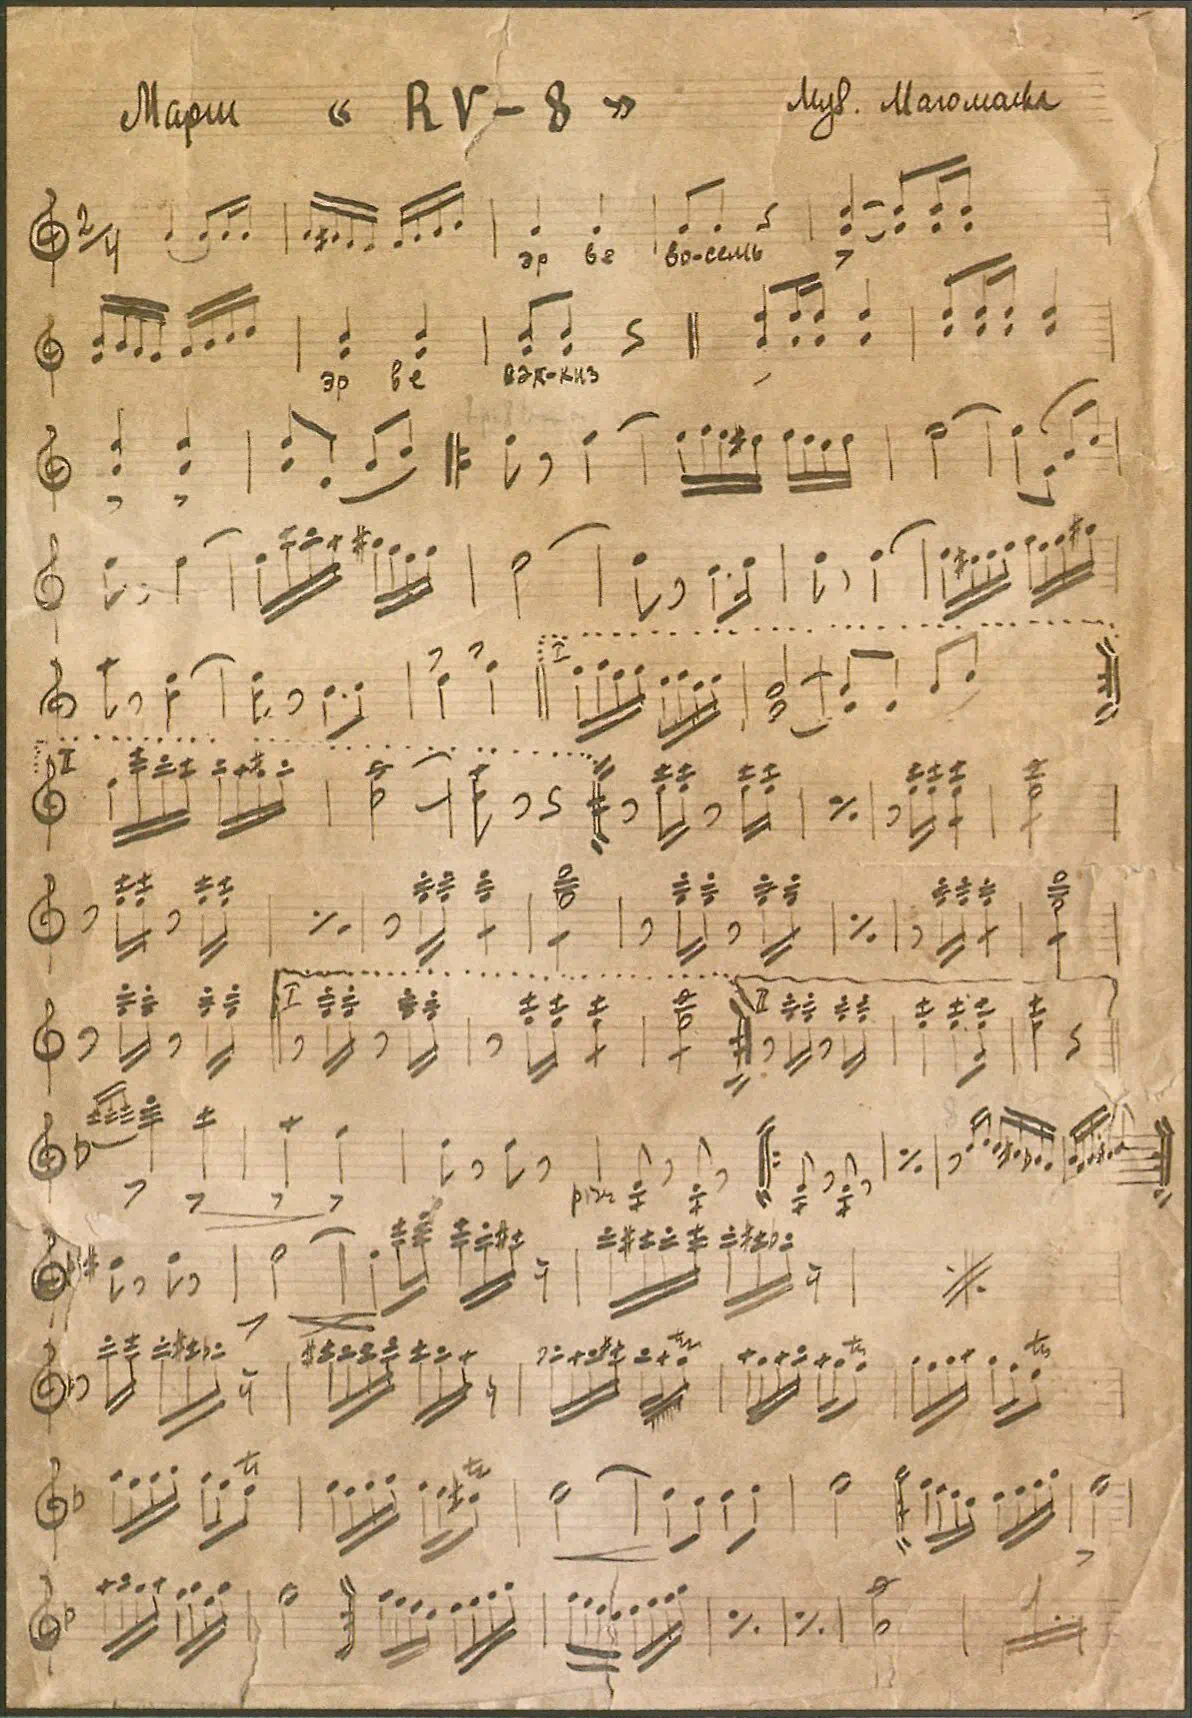 Марш « RV-8 » Муз. Магомаева
2/4
эр ве во-семь
эр ве сэк-киз
I
II
I II
pizz
tr
tr tr
tr tr